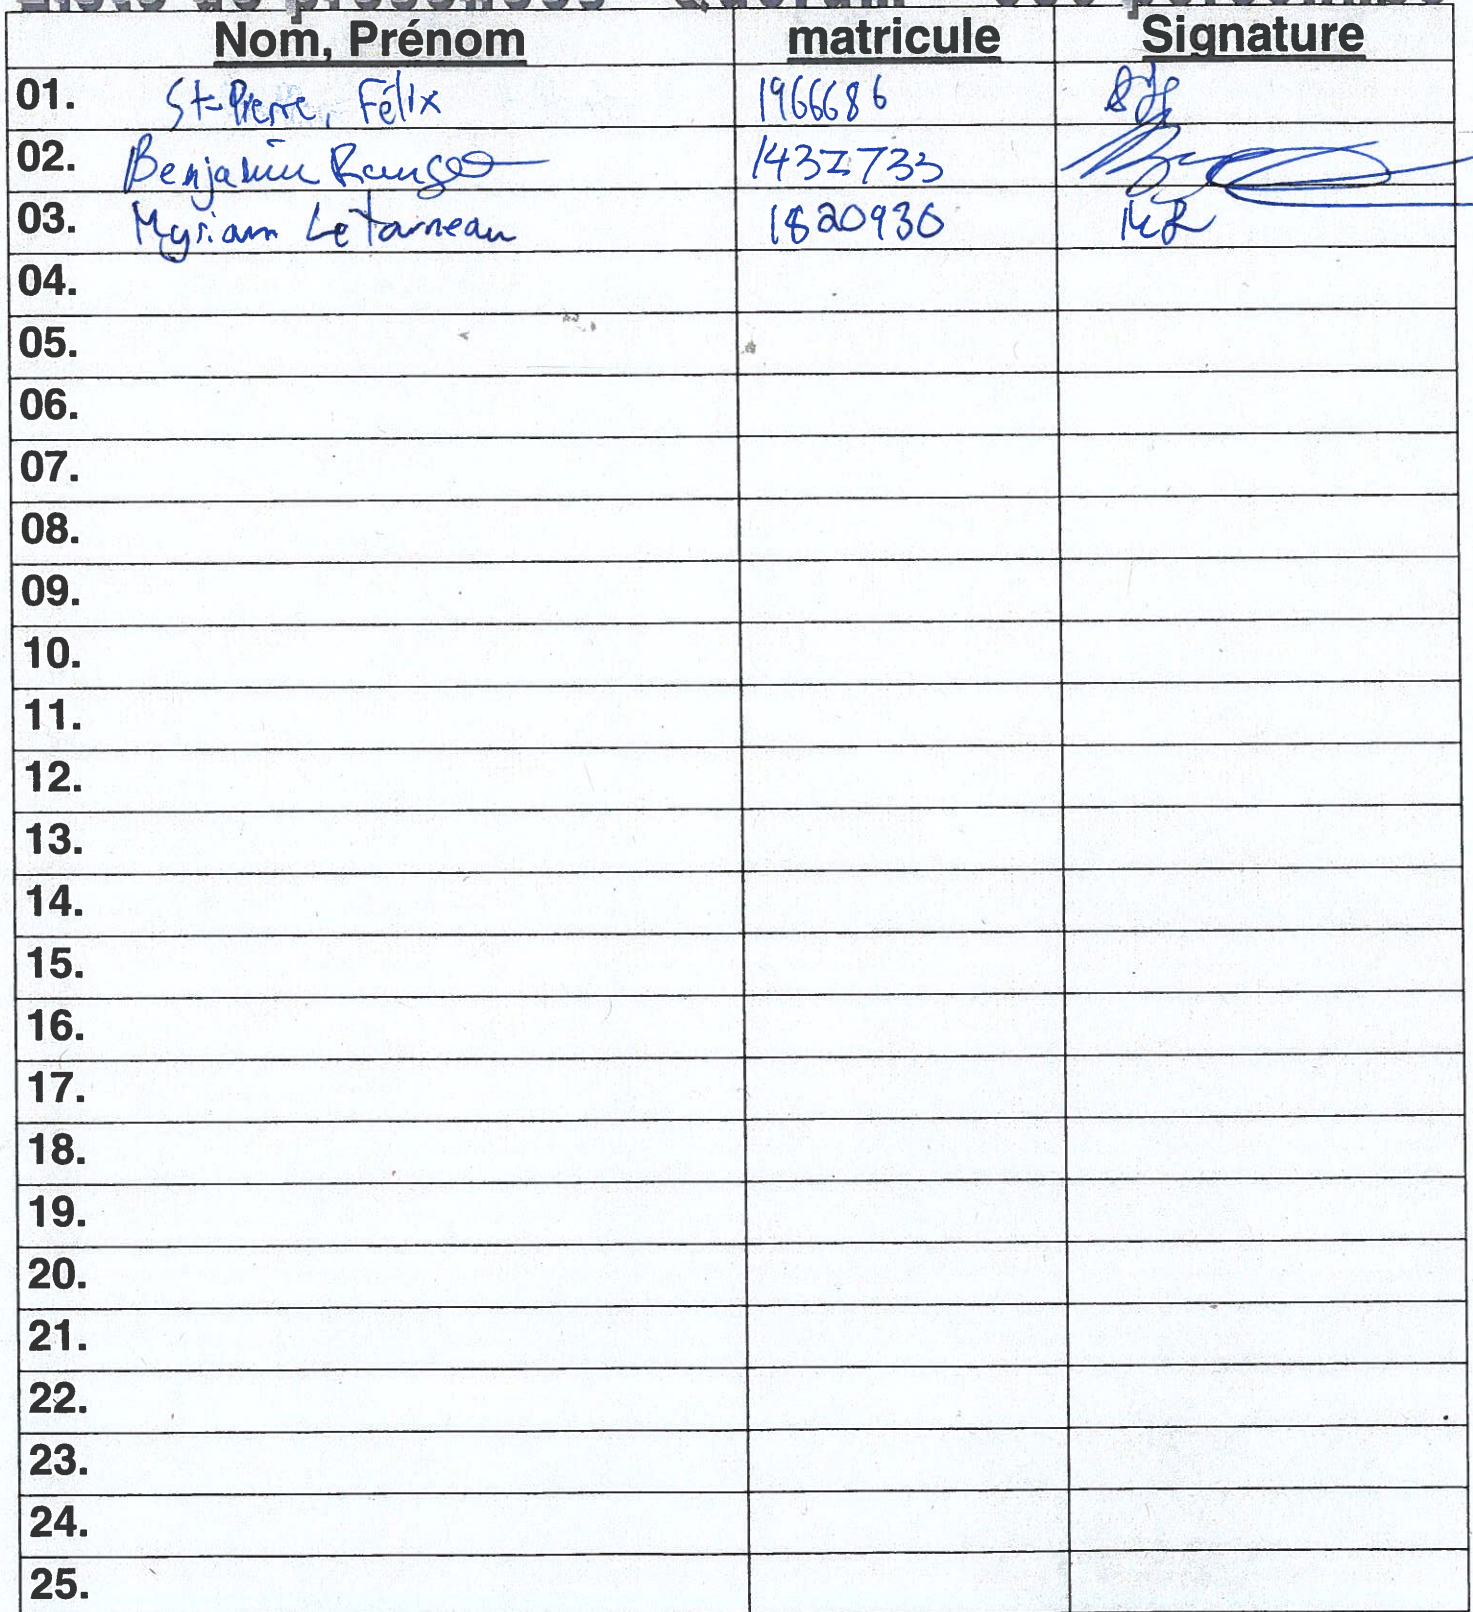 Nom, Prénom matricule Signature
01. St-Pierre, Félix 1966686
02. Benjamin 1437733
03. Myriam Létourneau 1820930 ML
04.
05.
06.
07.
08.
09.
10.
11.
12.
13.
14.
15.
16.
17.
18.
19.
20.
21.
22.
23.
24.
25.